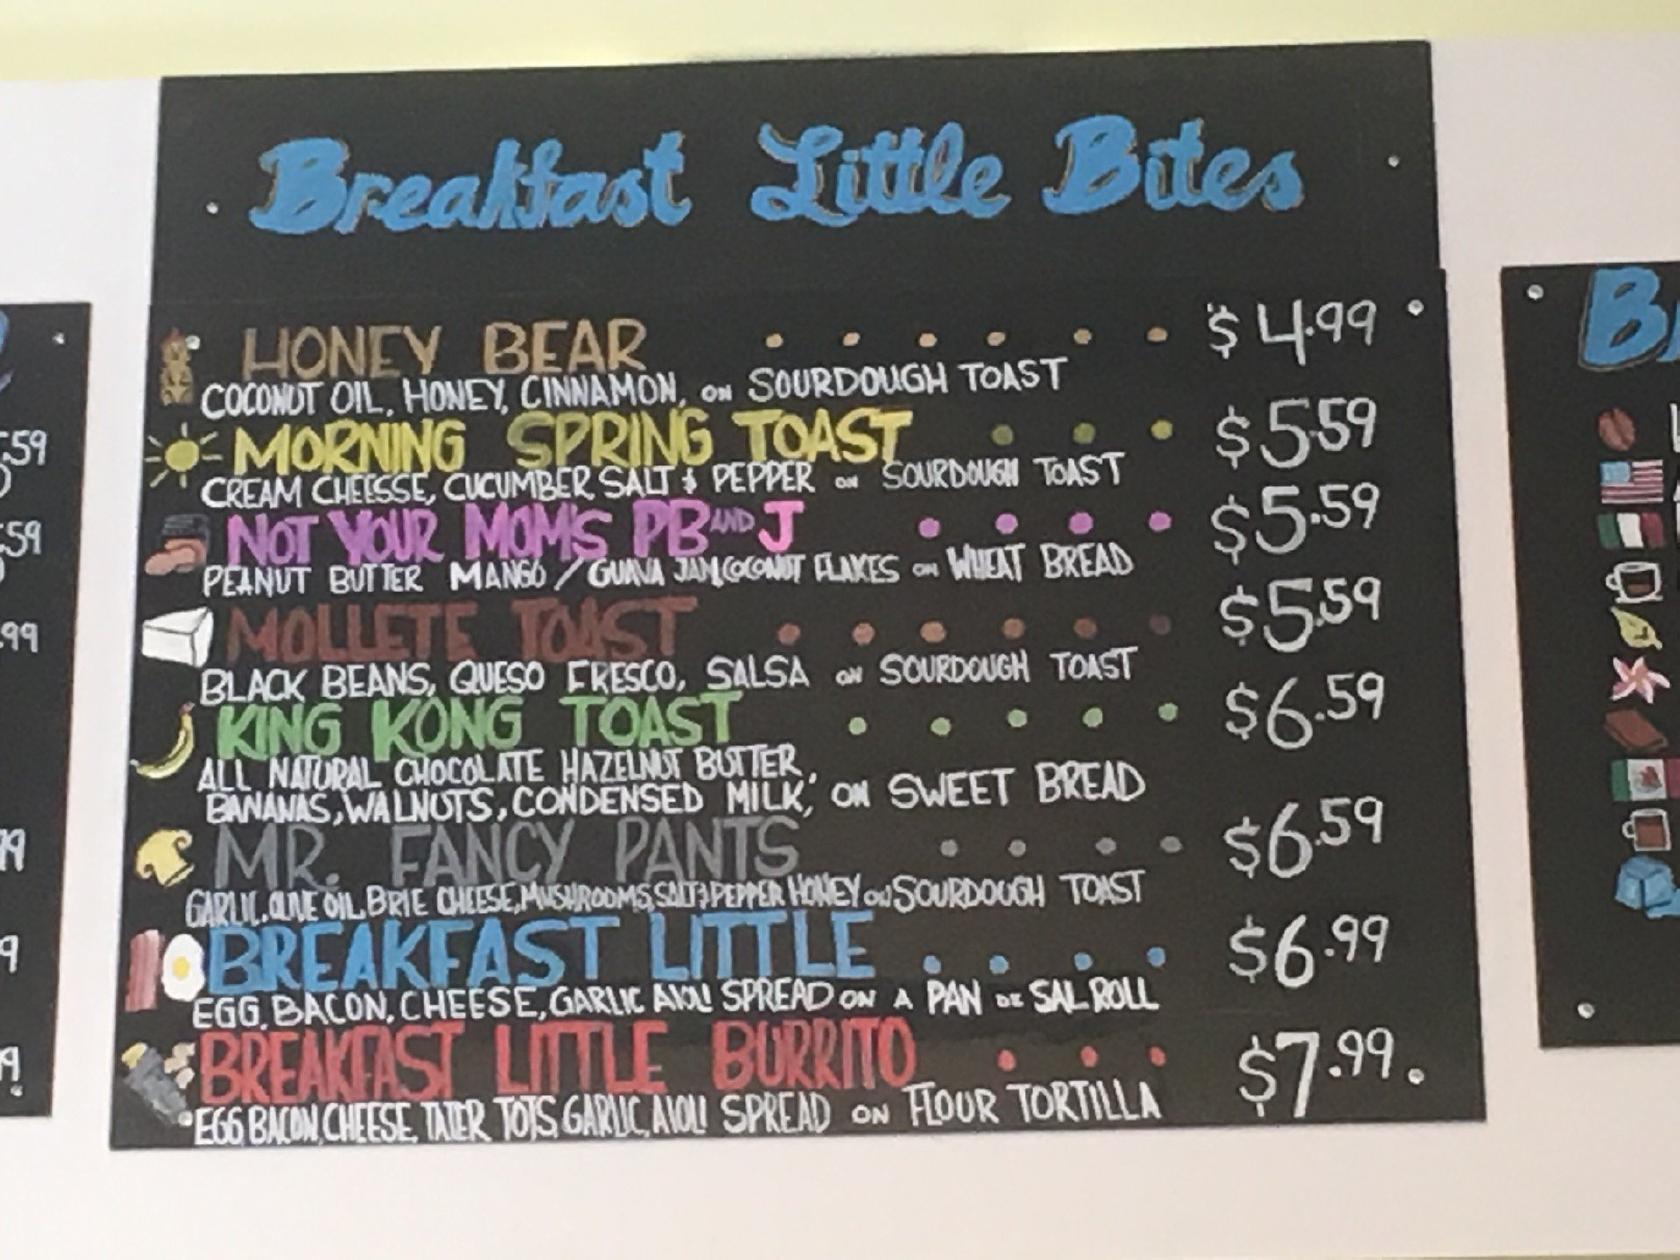 Breakfast Little Bites
HONEY BEAR $4.99
COCONUT OIL, HONEY, CINNAMON, ON SOURDOUGH TOAST
MORNING SPRING TOAST $5.59
CREAM CHEESSE, CUCUMBER SALT & PEPPER ON SOURDOUGH TOAST
NOT YOUR MOM'S PB AND J $5.59
PEANUT BUTTER MANGO / GUAVA JAM, COCONUT FLAKES ON WHEAT BREAD
MOLLETE TOAST $5.59
BLACK BEANS, QUESO FRESCO, SALSA ON SOURDOUGH TOAST
KING KONG TOAST $6.59
ALL NATURAL CHOCOLATE HAZELNUT BUTTER,
BANANAS, WALNUTS, CONDENSED MILK, ON SWEET BREAD
MR. FANCY PANTS $6.59
GARLIC, OLIVE OIL, BRIE CHEESE, MUSHROOMS, SALT & PEPPER HONEY ON SOURDOUGH TOAST
BREAKFAST LITTLE $6.99
EGG, BACON, CHEESE, GARLIC AIOLI SPREAD ON A PAN DE SAL ROLL
BREAKFAST LITTLE BURRITO $7.99
EGG BACON, CHEESE, TATER TOTS, GARLIC, AIOLI SPREAD ON FLOUR TORTILLA
.59
.59
.99